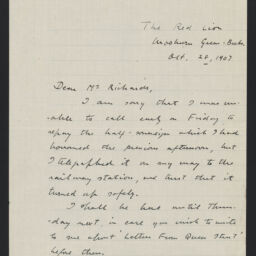 The Red Lion
Green: Bucks.
Oct. 28, 1907
Dear Mr Richards,
I am sorry that I was un-
able to call early on Friday to
repay the half-sovereign which I had
borrowed the previous afternoon, but
I telegraphed it on my way to the
railway station, and trust that it
turned up safely.
I shall be here until Thurs-
day next, in case you wish to write
to me about 'Letters From Queer Street'
before then.